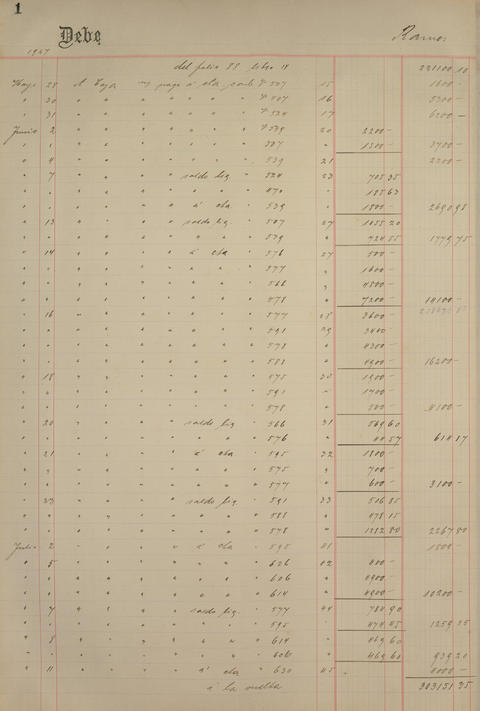 1
Debe
Ramos
1927
del folio 88 libro 14 221100.10
Mayo 28 A Caja pago á cta 507 15 1600-
" 30 " " " " " " 507 16 5300-
" 31 " " " " " " 524 17 6200-
Junio 2 " " " " " " 539 20 2200-
" " " " " " " " 507 " 1500- 3700-
" 4 " " " " " " 539 21 2200-
" 7 " " " " saldo liq. " 524 23 705.35
" " " " " " " " 470 " 185.63
" " " " " " á cta " 539 " 1800- 2690.98
" 13 " " " " saldo liq. " 507 27 1055.20
" " " " " " " " 539 " 724.55 1779.75
" 14 " " " " á cta " 576 27 500-
" " " " " " " " 577 " 1600-
" " " " " " " " 566 " 4800-
" " " " " " " " 578 " 7200- 14100-
" 16 " " " " " " 577 28 3600-
" " " " " " " " 591 29 3400-
" " " " " " " " 578 " 4300-
" " " " " " " " 588 " 4900- 16200-
" 18 " " " " " " 575 30 1900-
" " " " " " " " 591 " 1700-
" " " " " " " " 578 " 4100-
" 20 " " " " saldo liq. " 566 31 569.60
" " " " " " " " 576 " 614.87
" 21 " " " " á cta " 595 32 1800-
" " " " " " " " 575 " 700-
" " " " " " " " 577 " 600- 3100-
" 23 " " " " saldo liq. " 591 33 516.85
" " " " " " " " 588 " 478.15
" " " " " " " " 578 " 2267.80
Julio 2 " " " " á cta " 595 41 1500-
" 5 " " " " " " 626 42 400-
" " " " " " " " 606 " 4900-
" " " " " " " " 614 " 4900- 10200-
" 7 " " " " saldo liq. " 577 44 784.90
" " " " " " " " 595 " 474.45 1259.35
" 8 " " " " " " 614 " 469.60
" " " " " " " " 606 " 469.60 939.20
" 11 " " " " á cta " 630 45 4000-
á la vuelta 303151.35